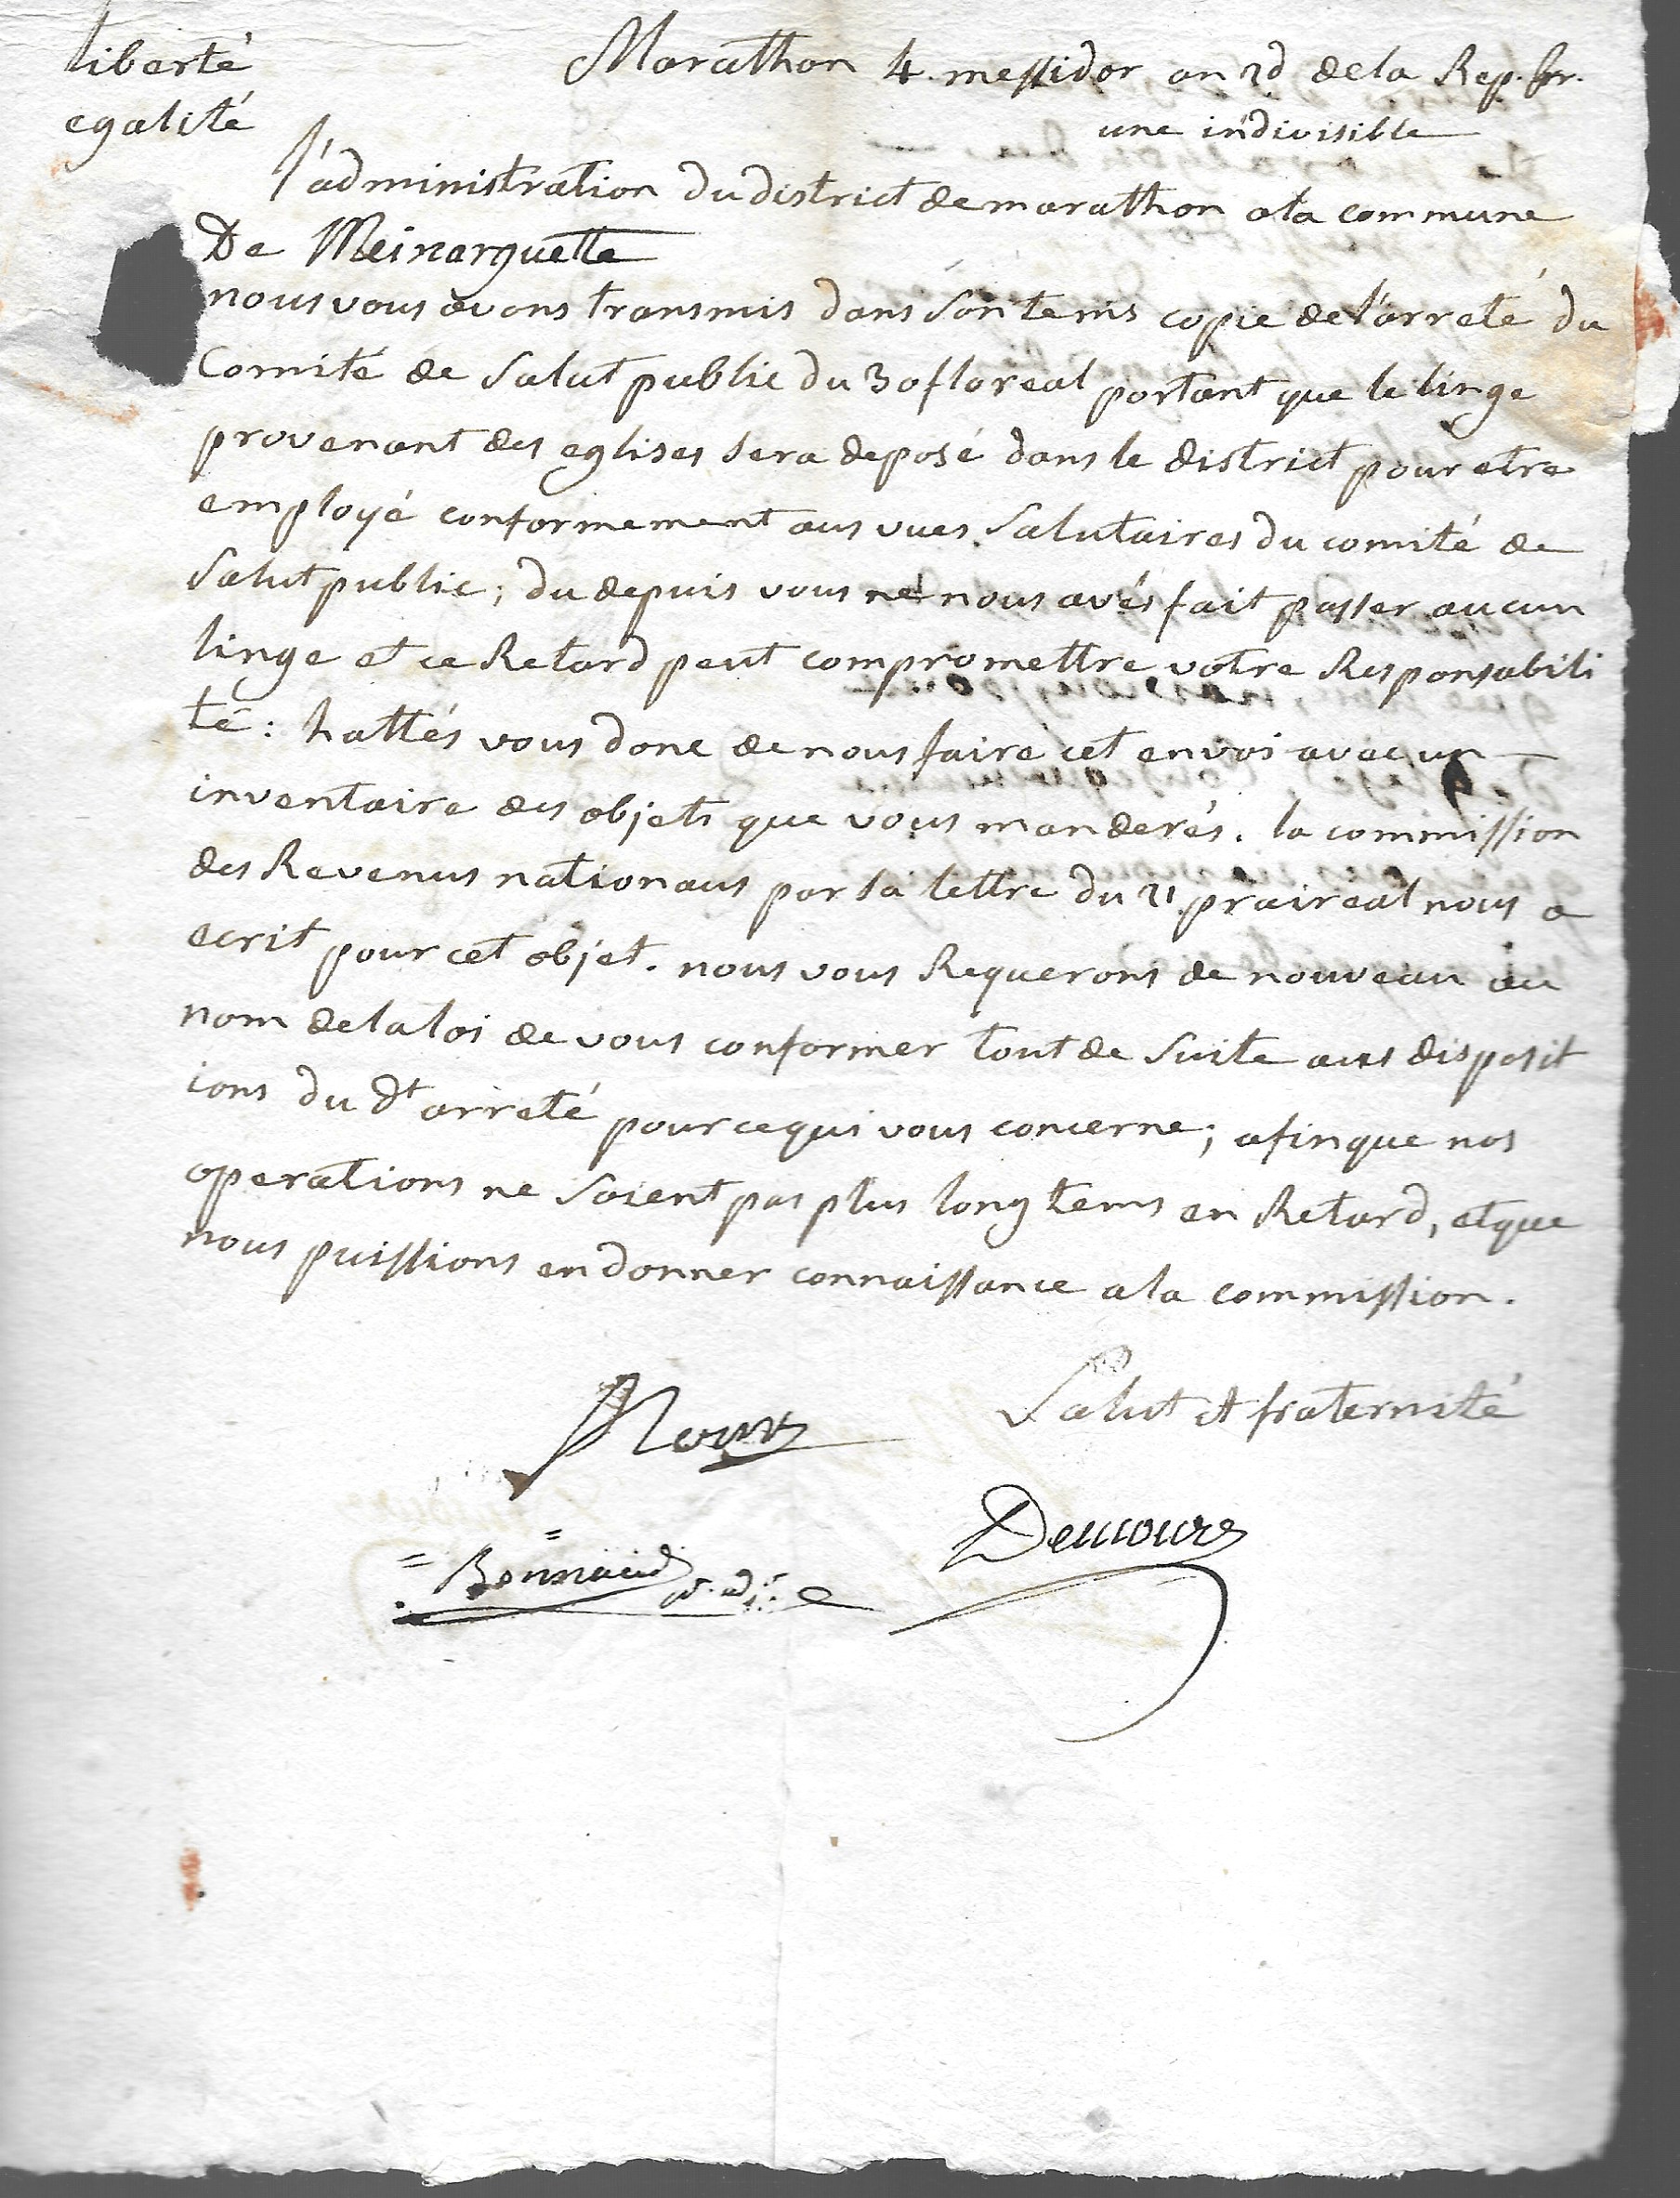 liberté
egalité
Marathon 4. messidor an 2d de la Rep. fr.
une indivisible
l'administration du district de marathon a la commune
De Meirarguette
nous vous avons transmis dans son tems copie de l'arreté du
Comité de Salut public du 30 floreal portant que le linge
provenant des eglises sera deposé dans le district pour etre
employé conformement aus vues salutaires du comité de
Salut public; du depuis vous ne nous avés fait passer aucun
linge et ce Retard peut compromettre votre Responsabili
té: hattés vous donc de nous faire cet envoi avec un
inventaire des objets que vous manderés. la commission
des Revenus nationaus par sa lettre du 21 praireal nous a
ecrit pour cet objet. nous vous Requerons de nouveau au
nom de la loi de vous conformer tout de suite aus disposit
ions du dt arreté pour ce qui vous concerne; afin que nos
operations ne soient pas plus long tems en Retard, et que
nous puissions en donner connaissance a la commission.
Salut et fraternité
Roux
Bonnaud